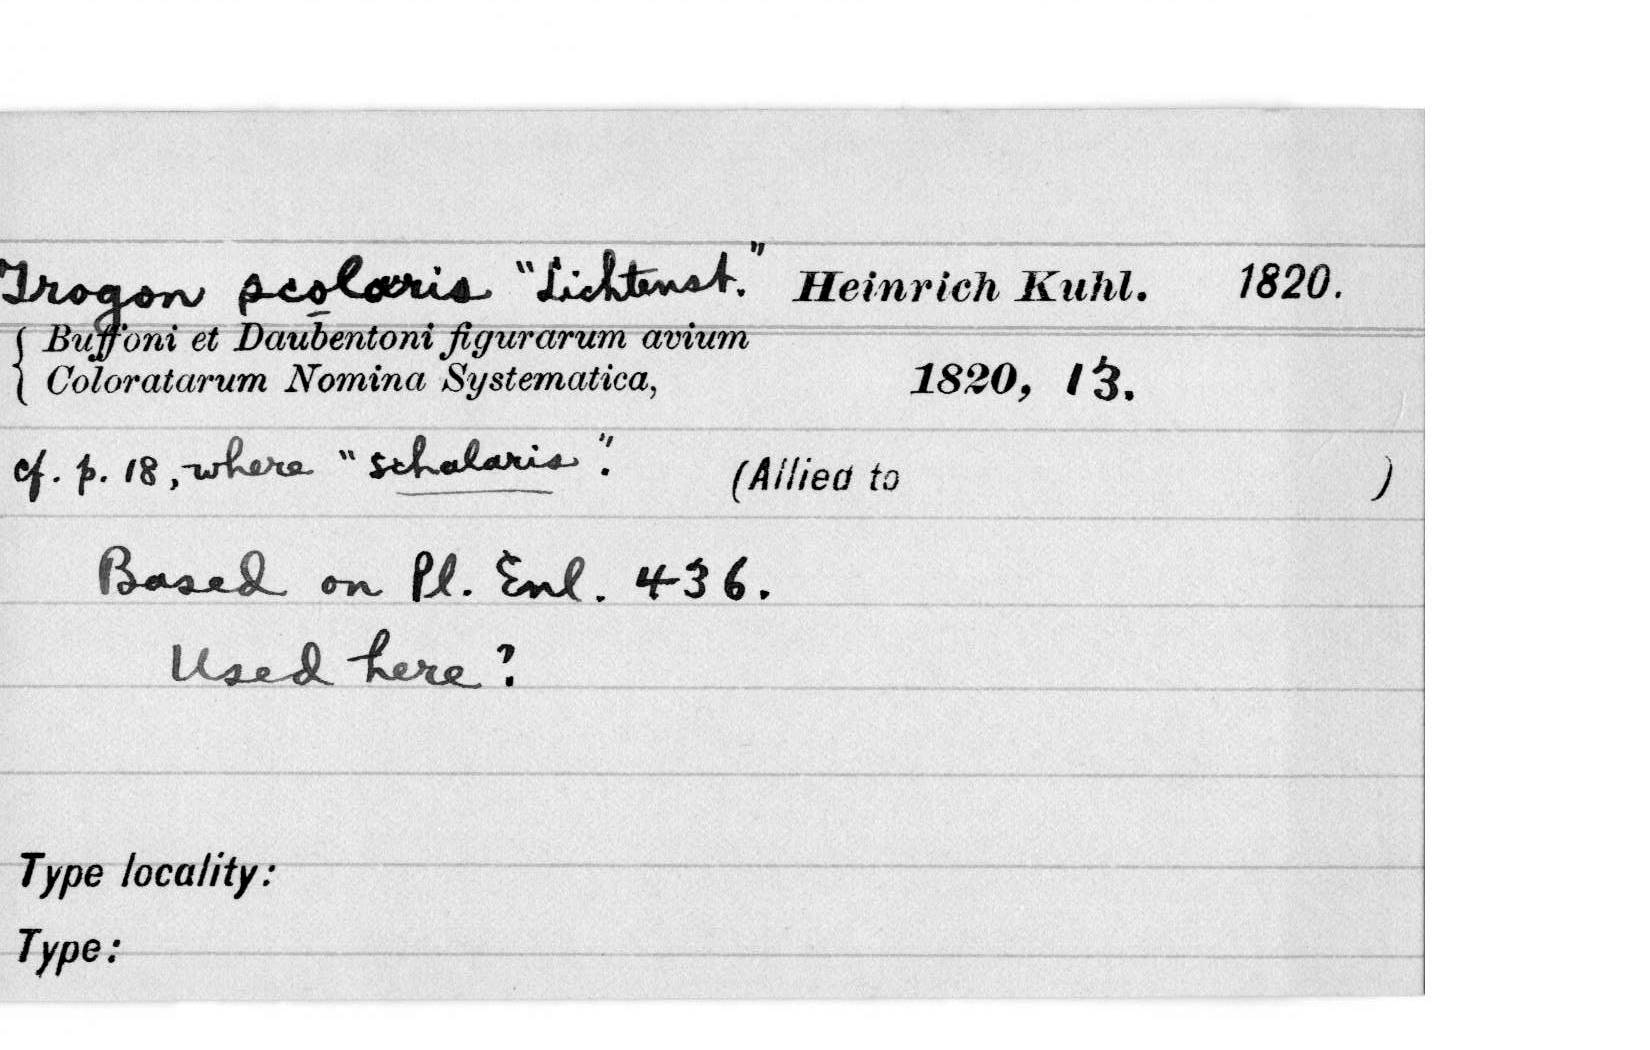 Trogon scolaris "Lichtenst." Heinrich Kuhl. 1820.
Buffoni et Daubentoni figurarum avium
Coloratarum Nomina Systematica, 1820, 13.
cf. p. 18, where "schalaris". (Allied to )
Based on Pl. Enl. 436.
Used here?
Type locality:
Type: